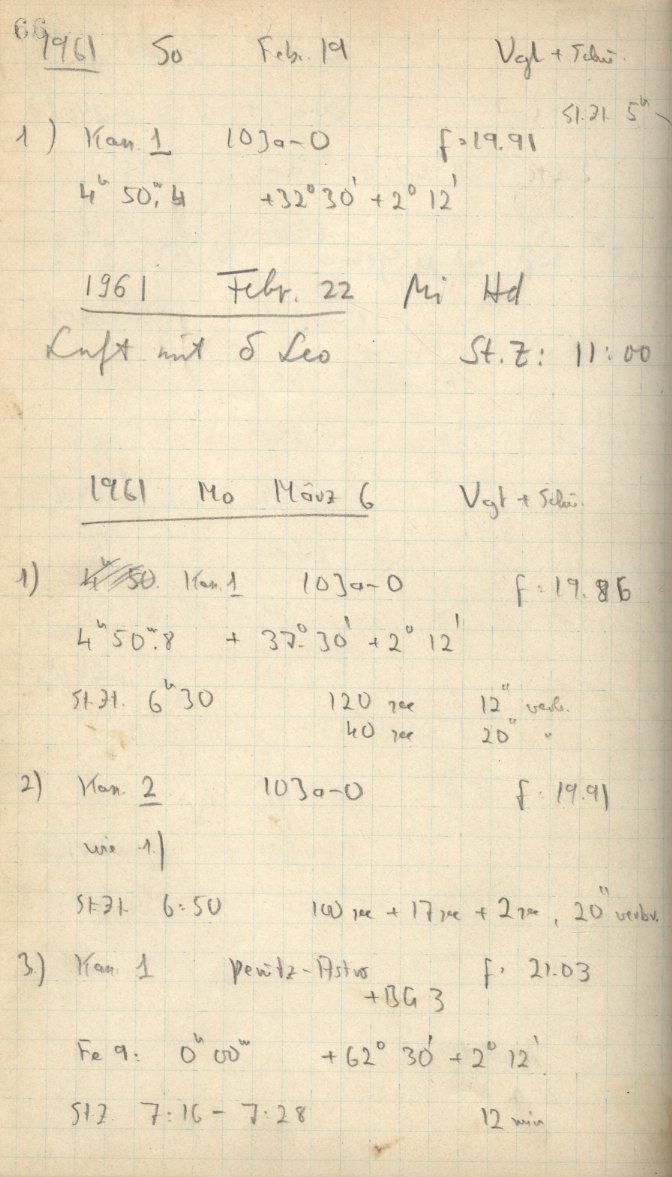 66
1961 So Febr. 19 Vgl + Schü.
St.Zt. 5ʰ
1) Kas. 1 103a-O f = 19.91
4ʰ 50ᵐ.4 +32° 30' + 2° 12'
1961 Febr. 22 Mi Hd
Luft mit δ Leo St.Z: 11:00
1961 Mo März 6 Vgt + Schü.
1) 4ʰ 50. Kas. 1 103a-O f: 19.86
4ʰ 50ᵐ.8 + 37° 30' + 2° 12'
St.Zt. 6ʰ 30 120 sec 12" verbr.
40 sec 20" "
2) Kas. 2 103a-O f: 19.91
wie 1)
St.Zt. 6:50 100 sec + 17 sec + 2 sec, 20" verbr.
3.) Kas 1 Perutz-Astro f: 21.03
+BG 3
Fe 9: 0ʰ 00ᵐ +62° 30' + 2° 12'
StZ 7:16 - 7:28 12 min